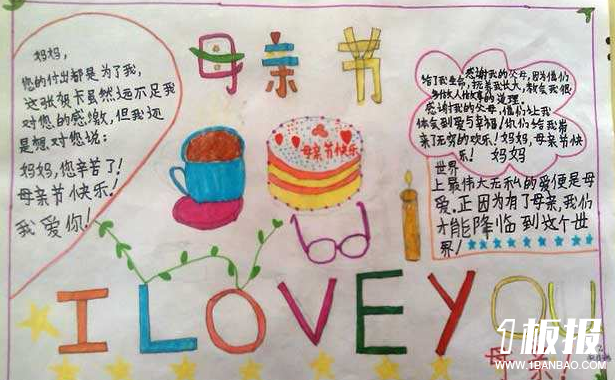 母亲节
妈妈，
您的付出都是为了我，
这张贺卡虽然远不足我
对您的感激，但我还
是想对您说：
妈妈，您辛苦了！
母亲节快乐！
我爱你！
母亲节快乐
感谢我的父母，因为他们
给了我生命，抚养我长大，教会我很
多做人做事的道理。
感谢我的父母，他们让我
体会到爱与幸福！他们给我带
来了无穷的欢乐！妈妈，母亲节快
乐！妈妈
世界
上最伟大无私的爱便是母
爱。正因为有了母亲，我们
才能降临到这个世
界！
I LOVE YOU
母亲！
1板报
WWW.1BANBAO.COM